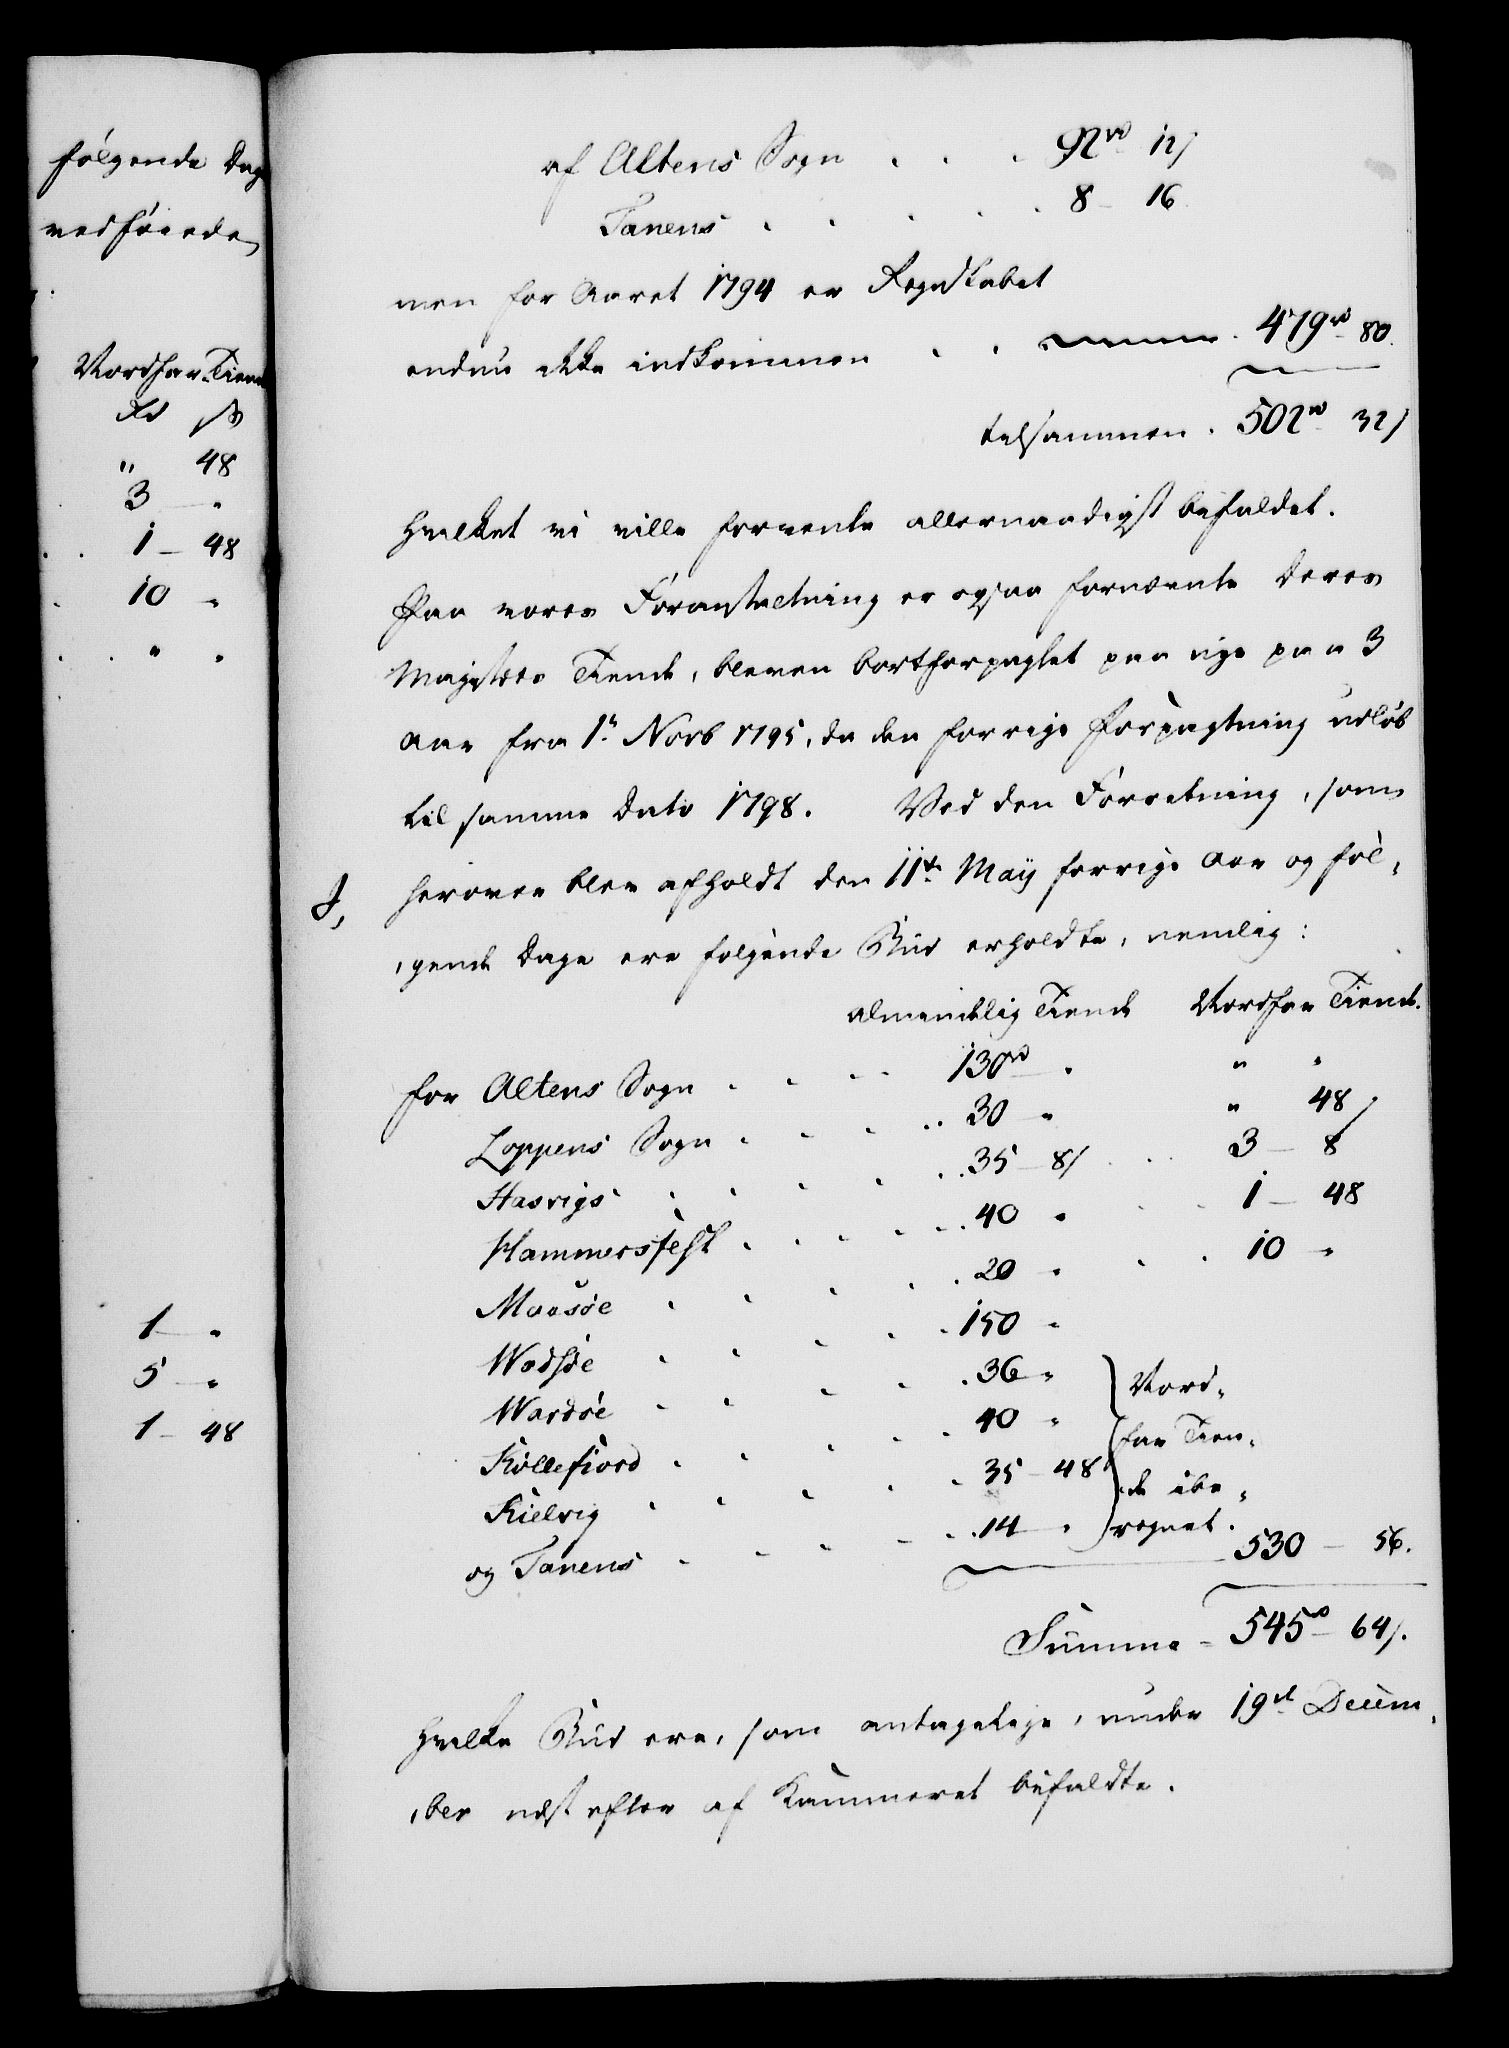 følgende Dage
vedføiede
Nordfar Tiende
Rd ß
" 48
3 — "
1 — 48
10 "
" "
1 — "
5 — "
1 — 48
af Altens Sogn . . . 92rd 12ß
Tanens . . . . . 8 — 16
men for Aaret 1794 er Regnskabet
endnu ikke indkommen . . 479rd 80.
tilsammen . 502rd 32ß
hvilket vi ville forvente allernaadigst bifaldet.
Paa vores Foranstaltning er ogsaa fornævnte Deres
Majestæts Tiende, bleven bortforpagtet paa nye paa 3
Aar fra 1te Novb 1795, da den forrige Forpagtning udløb
til samme Dato 1798. Ved den Forretning, som
J, herover blev afholdt den 11te Maÿ forrige Aar og føl,
,gende Dage ere følgende Bud erholdte, nemlig:
almindelig Tiende Nordfar Tiende.
for Altens Sogn . . . . 130rd " " "
Loppens Sogn . . . . . 30 " " 48ß
Hasvigs . . . . . . 35 — 8ß . . 3 — 8
Hammersfest . . . . . . 40 " . . 1 — 48
Maasøe . . . . . . 20 " . . 10 "
Wadsøe . . . . . 150 "
Wardøe . . . . . 36 " Nord,
Kollefiord . . . . . 40 " far Tien,
Kielvig . . . . . 35 — 48 de ibe,
og Tanens . . . . . 14 " regnet. 530 — 56.
Summa — 545rd 64ß.
hvilke Bud ere, som antagelige, under 19de Decem,
,ber næst efter af Kammeret bifaldte.